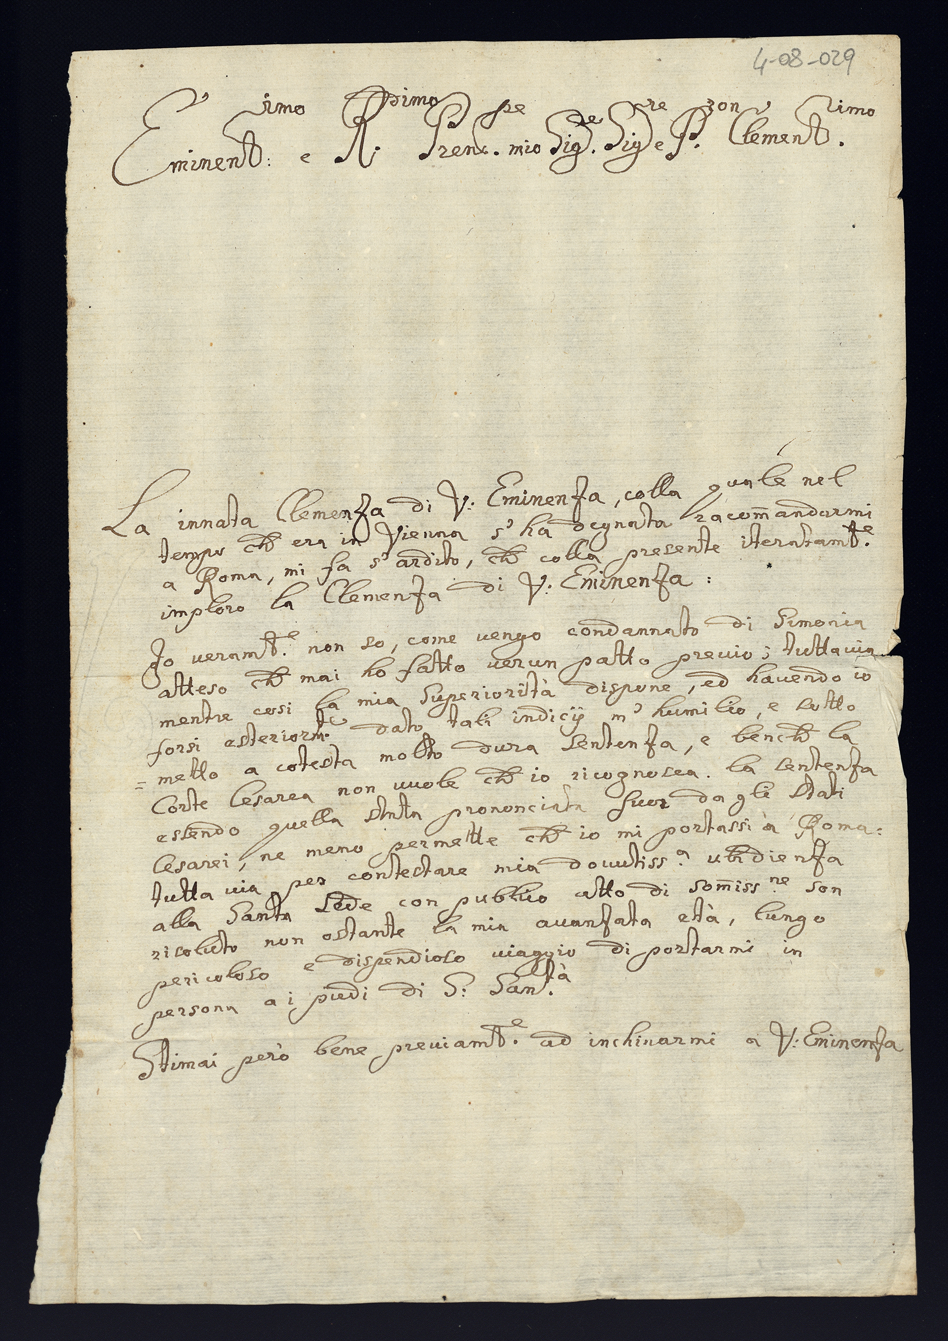 4-08-029
Eminent:simo e R:dimo Prenc.pe mio Sig.re Sig.re e P.ron Clement.simo
La innata Clemenza di V: Eminenza, colla quale nel
tempo ch̄ era in Vienna s'ha degnata racom̄andarmi
a Roma, mi fa s' ardito, ch̄ colla presente iteratamt.e
imploro la Clemenza di V: Eminenza:
Io veramt.e non so, come vengo condannato di Simonia
atteso ch̄ mai ho fatto verun patto previo; tuttavia
mentre cosi la mia Superiorità dispone, ed havendo io
forsi esteriormt.e dato tali indicij m' humilio, e sotto
=metto a cotesta molto dura sentenza, e bench̄ la
Corte Cesarea non vuole ch̄ io ricognosca la sentenza
essendo quella stata prononciata fuor da gli stati
Cesarei, ne meno permette ch̄ io mi portassi a Roma:
tutta via per contestare mia dovutiss.a ubbdienza
alla Santa Sede con publico atto di som̄iss.ne son
risoluto non ostante la mia avanzata età, lungo
pericoloso e dispendioso viaggio di portarmi in
persona a i piedi di S: Sant.tà
Stimai però bene previamt.e ad inchinarmi a V: Eminenza